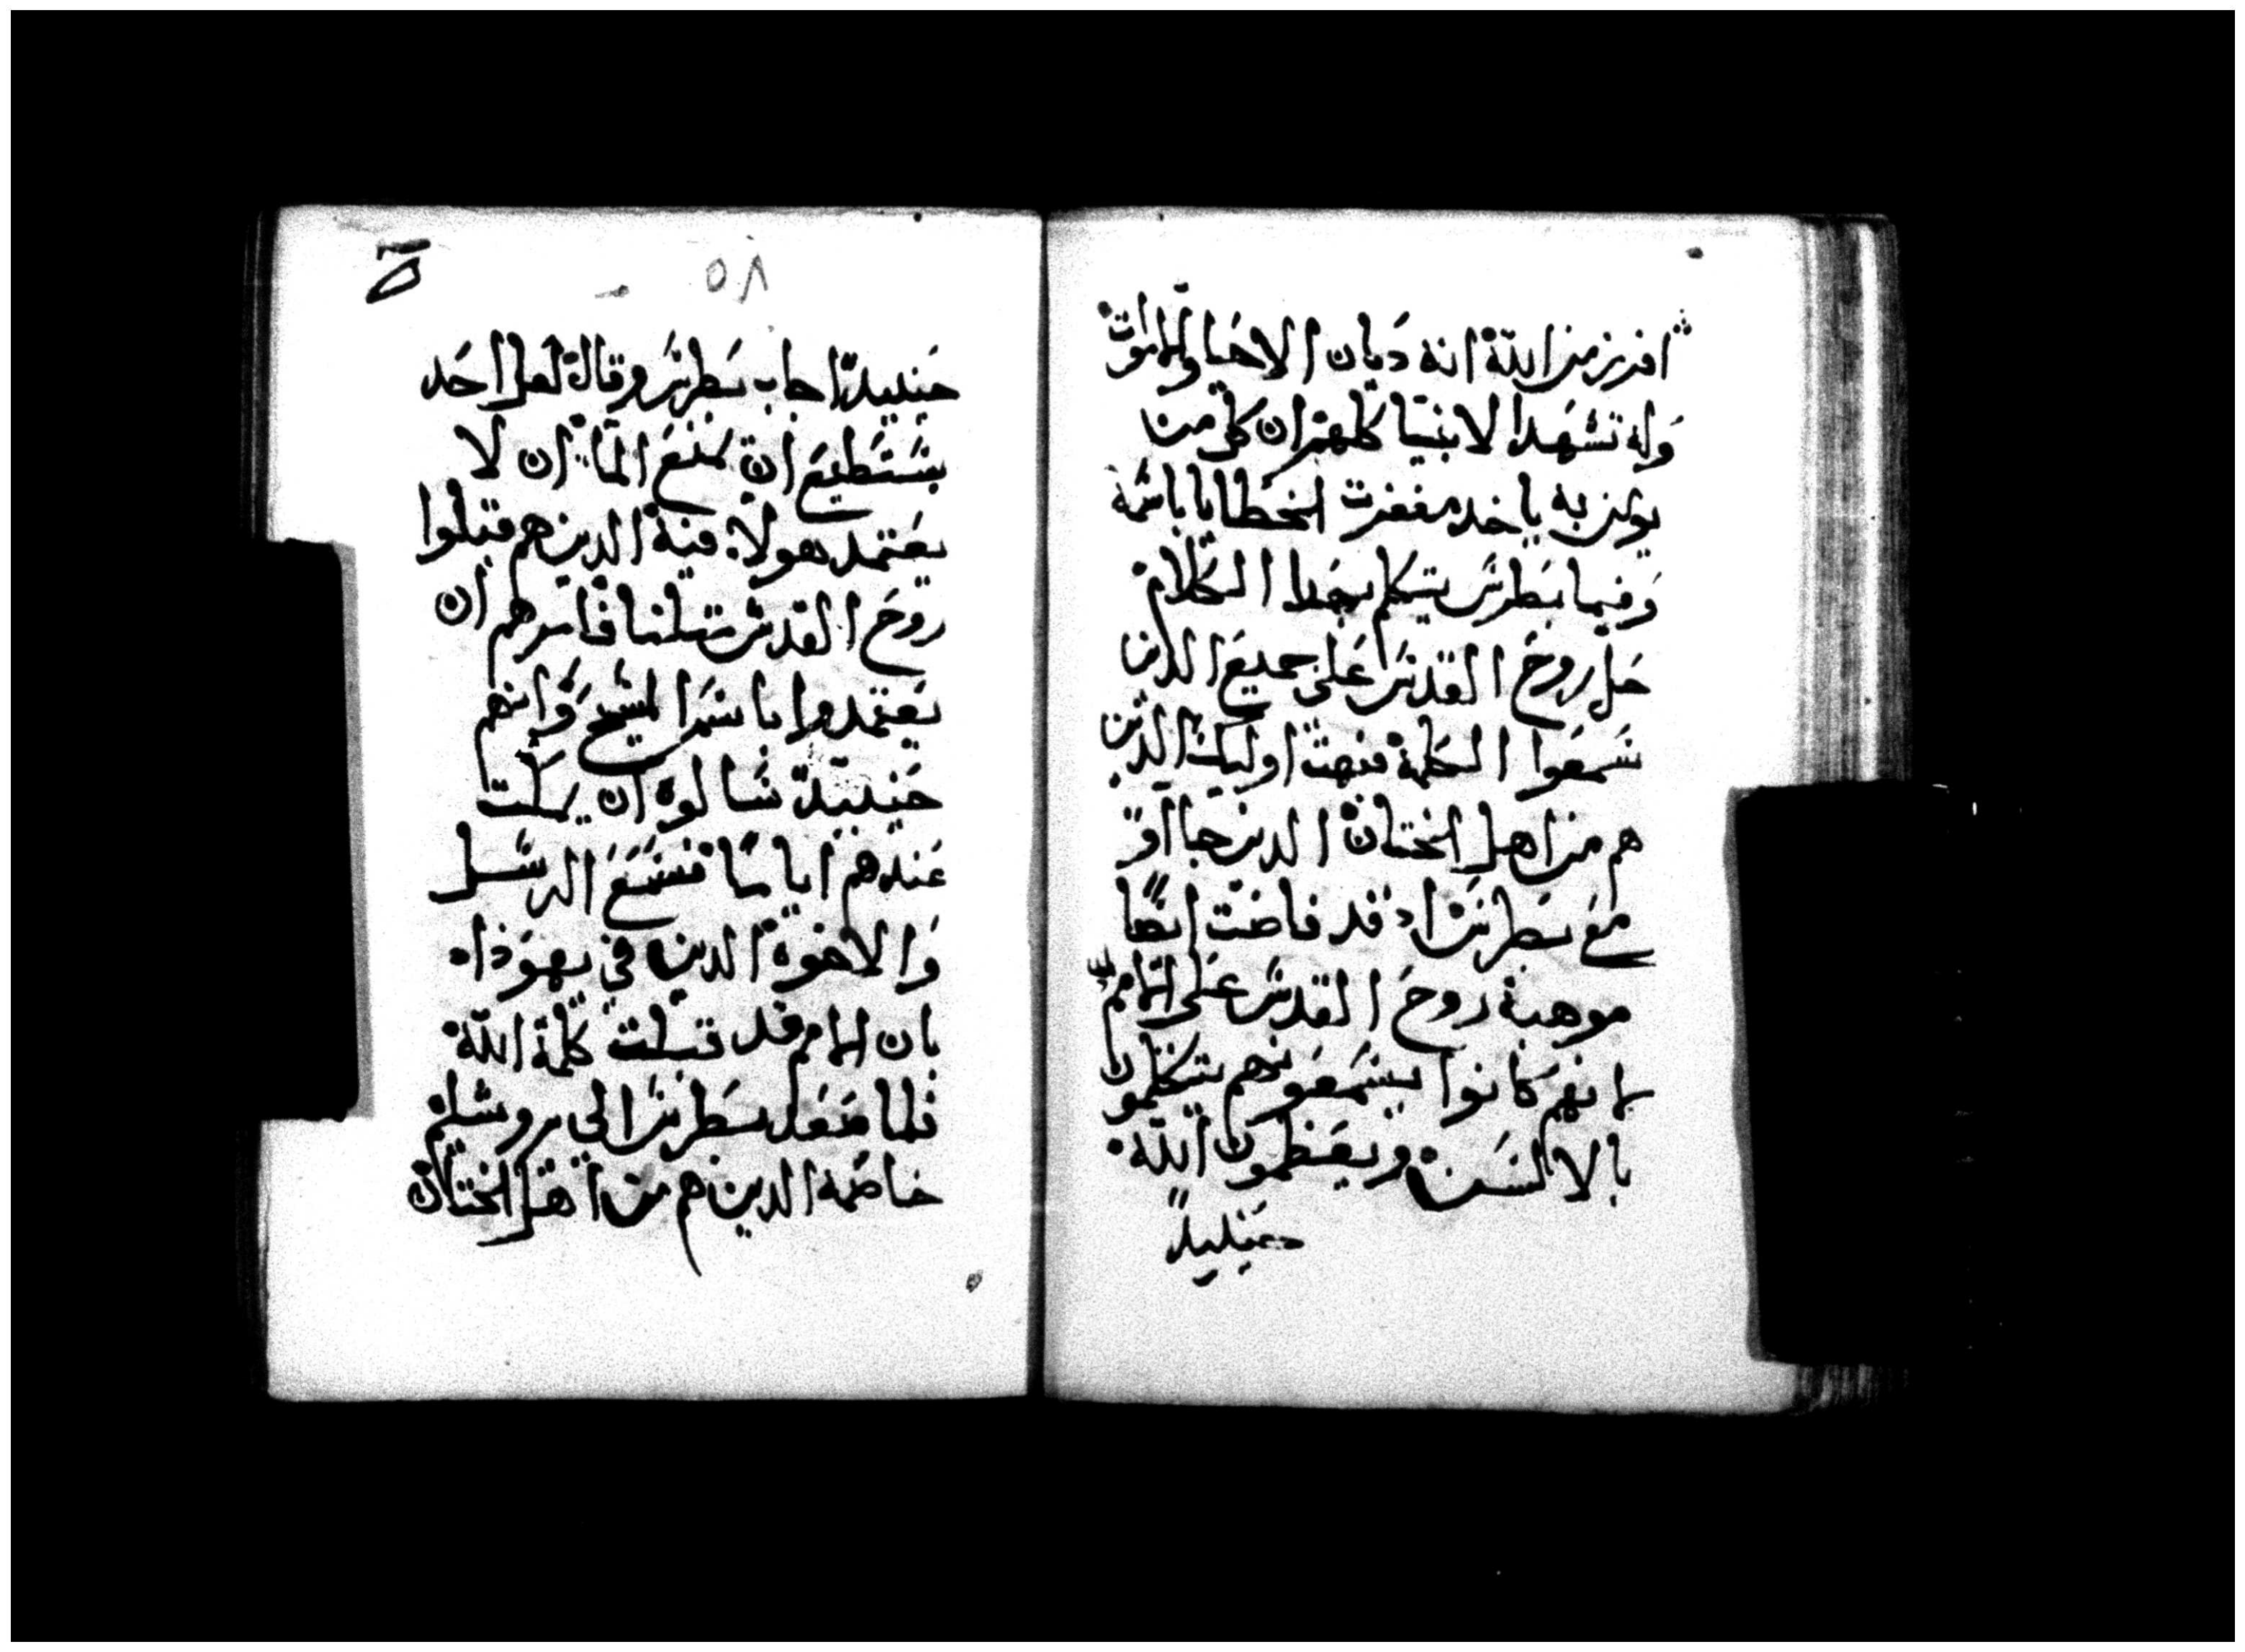 افرز من الله انه ديان الاحيا والاموات
وله تشهد الانبيا كلهم ان كل من
يومن به ياخد مغفرت الخطايا باسمه
وفيما بطرس يتكلم بهدا الكلام
حل روح القدس على جميع الدين
سمعوا الكلمة فبهت اوليك الدين
هم من اهل الختان الدين جااوا
مع بطرس اد قد فاضت ايضا
موهبة روح القدس على الامم
لانهم كانوا يسمعونهم يتكلمون
بالالسن ويعظمون الله
حينيدً
٥٨
حينيد اجاب بطرس وقال لعل احد
يستطيع ان يمنع الما ان لا
يعتمد هولا فيه الدين هم قبلوا
روح القدس مثلنا فامرهم ان
يعتمدوا باسم المسيح وانهم
حينيد سالوه ان يمكت
عندهم اياما فسمع الرسل
والاخوة الدين في يهوذا
بان الامم قد قبلت كلمة الله
فلما صعد بطرس الي يروشليم
خاصمه الدين هم من اهل الختان